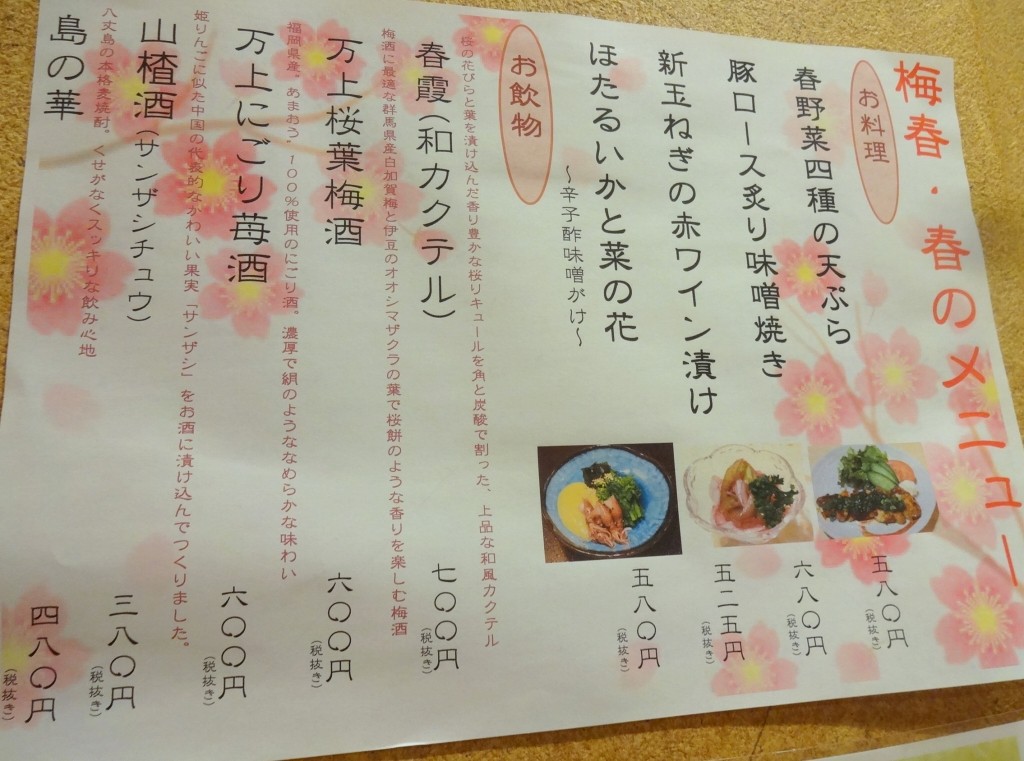 梅春・春のメニュー
お料理
春野菜四種の天ぷら
五八〇円
(税抜き)
豚ロース炙り味噌焼き
六八〇円
(税抜き)
新玉ねぎの赤ワイン漬け
五二五円
(税抜き)
ほたるいかと菜の花
〜辛子酢味噌がけ〜
五八〇円
(税抜き)
お飲物
桜の花びらと葉を漬け込んだ香り豊かな桜リキュールを角と炭酸で割った、上品な和風カクテル
春霞(和カクテル)
七〇〇円
(税抜き)
梅酒に最適な群馬県産白加賀梅と伊豆のオオシマザクラの葉で桜餅のような香りを楽しむ梅酒
万上桜葉梅酒
六〇〇円
(税抜き)
福岡県産。あまおう。100%使用のにごり酒。濃厚で絹のようななめらかな味わい
万上にごり苺酒
六〇〇円
(税抜き)
姫りんごに似た中国の代表的なかわいい果実「サンザシ」をお酒に漬け込んでつくりました。
山楂酒(サンザシチュウ)
三八〇円
(税抜き)
八丈島の本格麦焼酎。くせがなくスッキリな飲み心地
島の華
四八〇円
(税抜き)